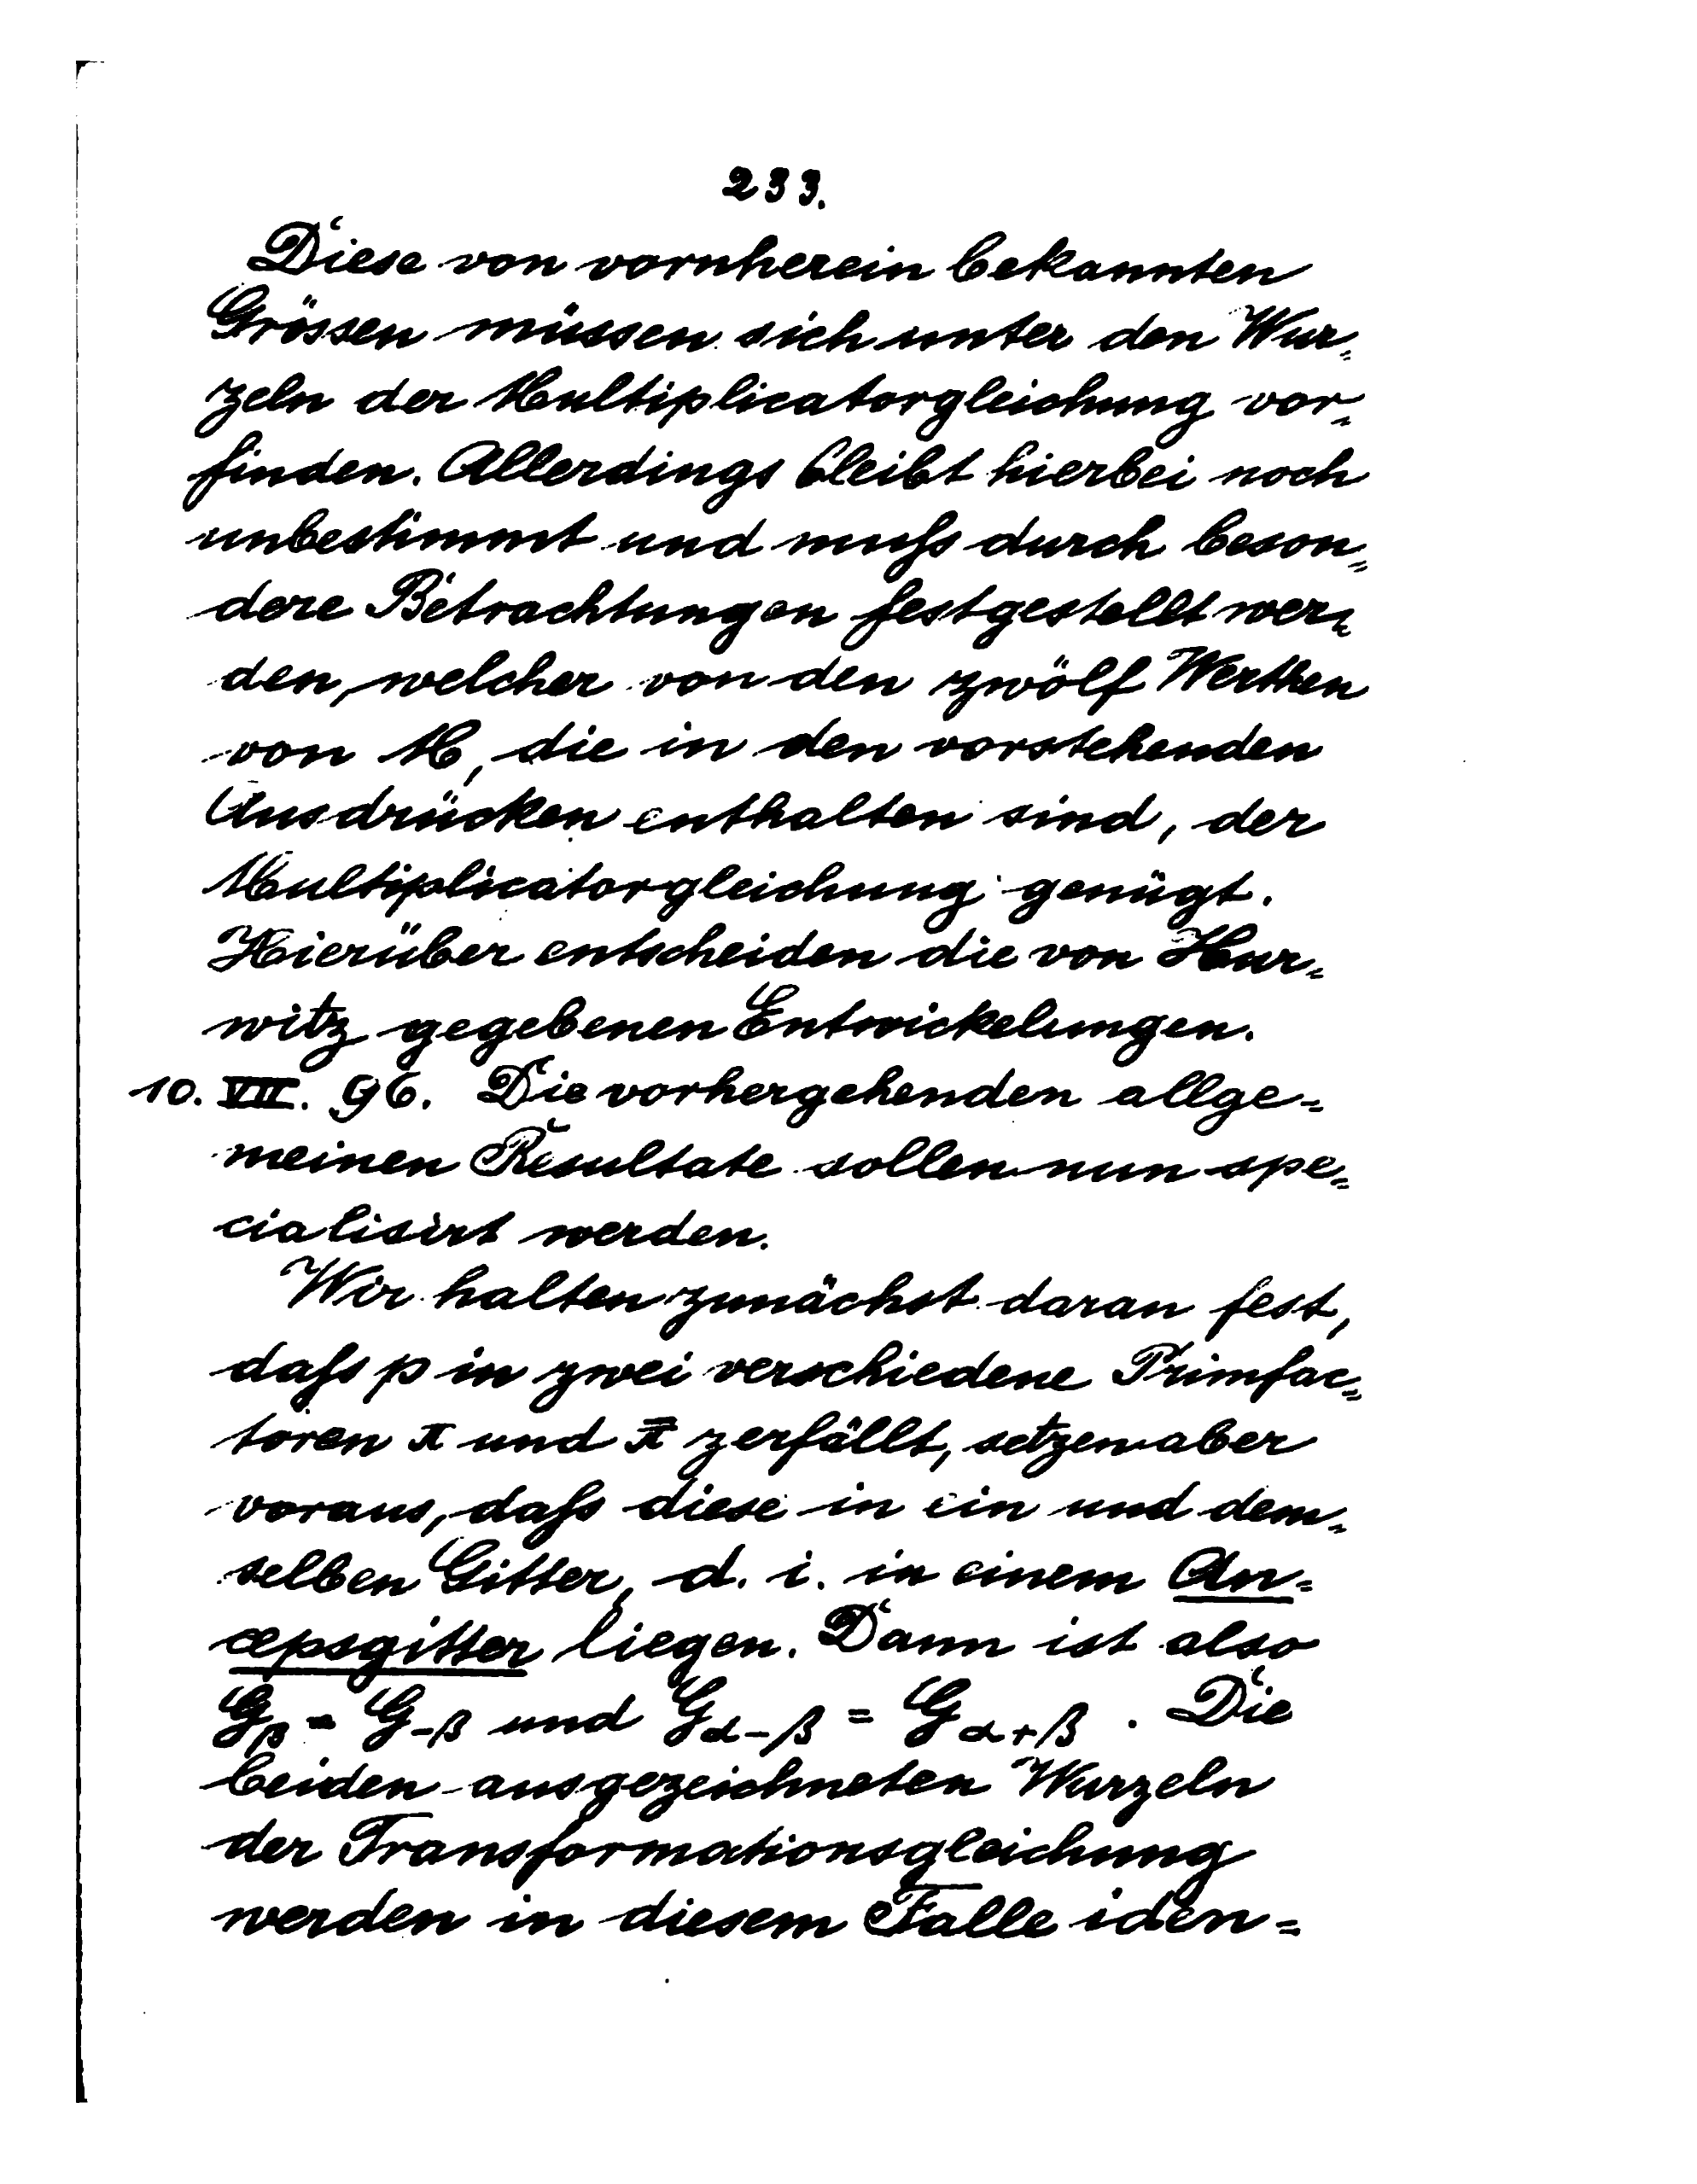 233.
Diese von vornherein bekannten
Grössen müssen sich unter den Wur=
zeln der Multiplicatorgleichung vor=
finden. Allerdings bleibt hierbei noch
unbestimmt und muſs durch beson=
dere Betrachtungen festgestellt wer=
den, welcher von den zwölf Werthen
von M, die in den vorstehenden
Ausdrücken enthalten sind, der
Multiplicatorgleichung genügt.
Hierüber entscheiden die von Hur=
witz gegebenen Entwickelungen.
10. VII. 96. Die vorhergehenden allge=
meinen Resultate sollen nun spe=
cialisirt werden.
Wir halten zunächst daran fest,
daſs p in zwei verschiedene Primfac=
toren π und π̄ zerfällt, setzen aber
voraus, daſs diese in ein und dem=
selben Gitter, d. i. in einem An=
cepsgitter liegen. Dann ist also
G_β = G_-β und G_α-β = G_α+β. Die
beiden ausgezeichneten Wurzeln
der Transformationsgleichung
werden in diesem Falle iden=